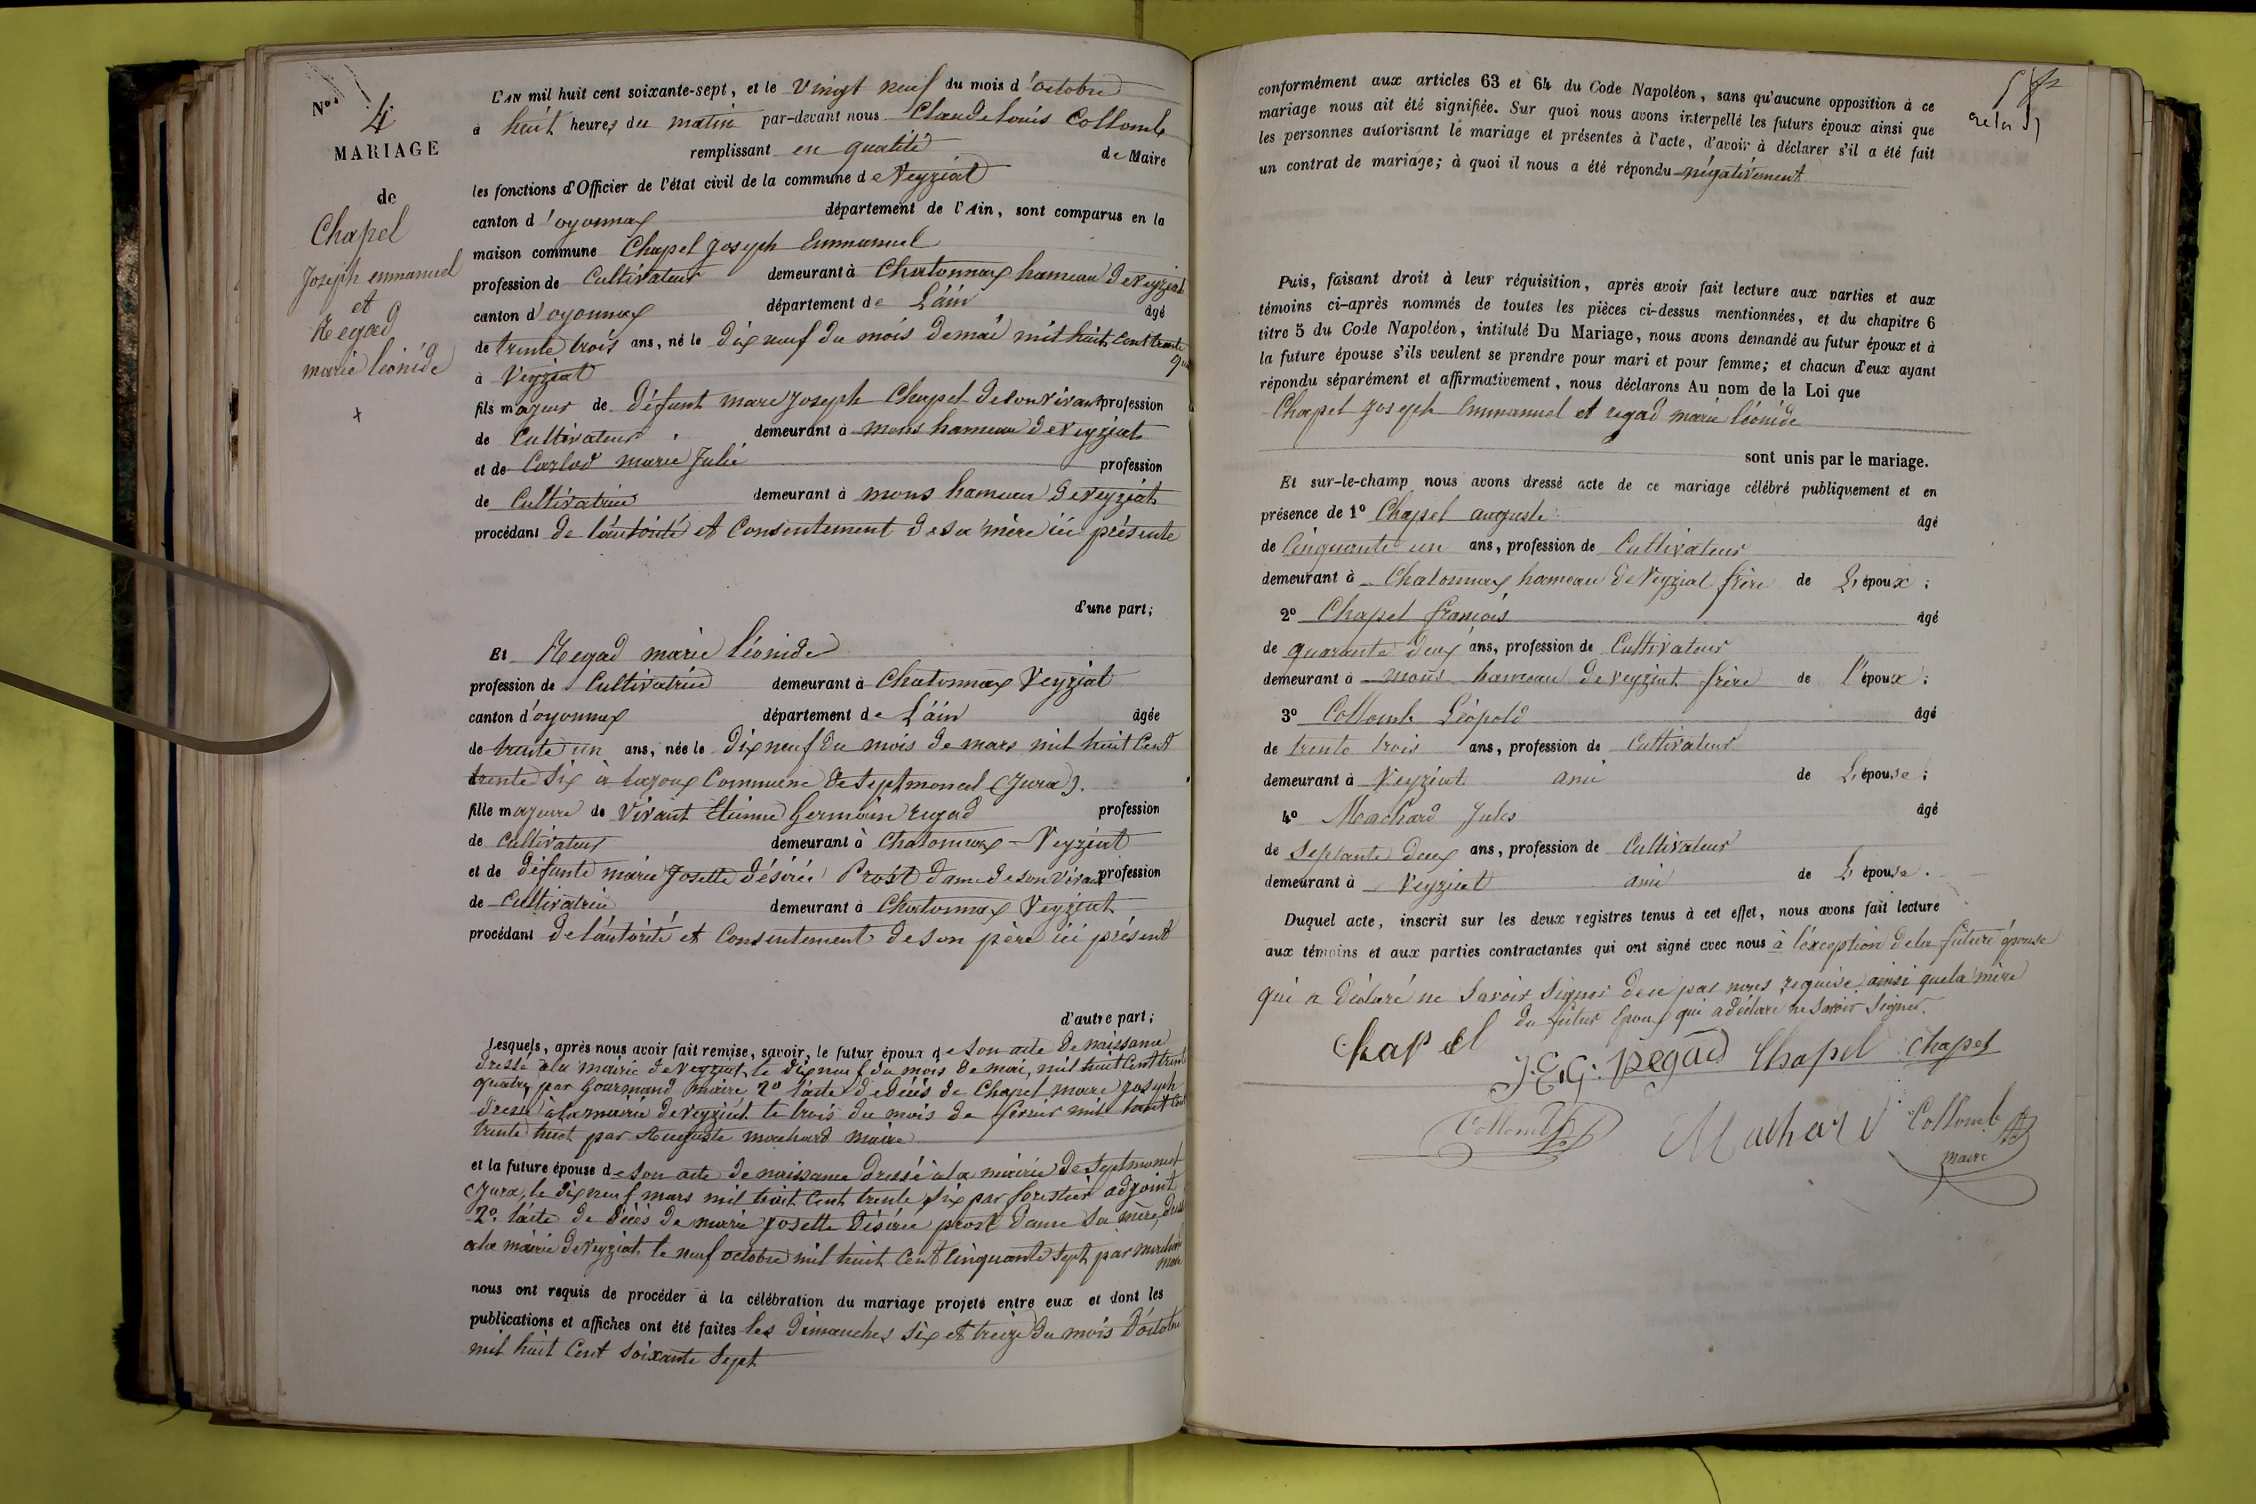 N° 4
MARIAGE
de
Chapel
Joseph emmanuel
et
Regad
marie léonide
L'AN mil huit cent soixante-sept, et le vingt neuf du mois d'octobre
à huit heures du matin par-devant nous Claude louis Collomb
remplissant en qualité de Maire
les fonctions d'Officier de l'état civil de la commune de Veyziat
canton d'oyonnax département de l'Ain, sont comparus en la
maison commune Chapel Joseph Emmanuel
profession de Cultivateur demeurant à Chatonnax hameau de veyziat
canton d'oyonnax département de L'áin âgé
de trente trois ans, né le dix neuf du mois de mai mil huit cent trente
à Veyziat
fils majeur de défunt marc Joseph Chapel de son vivant profession
de Cultivateur demeurant à mons hameau de veyziat
et de Carlod marie Julie profession
de Cultivatrice demeurant à mons hameau de veyziat
procédant de l'autorité et Consentement de sa mère ici présente
d'une part;
Et Regad marie léonide
profession de Cultivatrice demeurant à Chatonnax Veyziat
canton d'oyonnax département de L'áin âgée
de trente un ans, née le dix neuf du mois de mars mil huit Cent
trente six à Lajoux Commune de Septmoncel (Jura).
fille majeure de vivant Etienne Germain regad profession
de Cultivateur demeurant à Chatonnax - Veyziat
et de défunte marie Josette désirée Prost dame de son vivant profession
de Cultivatrice demeurant à Chatonnax Veyziat
procédant de l'autorité et Consentement de son père ici présent
d'autre part;
Lesquels, après nous avoir fait remise, savoir, le futur époux de son acte de naissance
dressé à la mairie de veyziat le dix neuf du mois de mai, mil huit Cent trente
quatre par Gourmand maire 2° l'acte de décès de Chapel marc Joseph
dressé à la mairie de veyziat le trois du mois de février mil huit cent
trente huit par Auguste marchard maire
et la future épouse de son acte de naissance dressé à la mairie de Septmoncel
(Jura, le dix neuf mars mil huit Cent trente six par forestier adjoint
2°. l'acte de décès de marie Josette désirée prost dame sa mère, dressé
à la mairie de veyziat le neuf octobre mil huit Cent Cinquante sept par
nous ont requis de procéder à la célébration du mariage projeté entre eux et dont les
publications et affiches ont été faites les dimanches six et treize du mois d'octobre
mil huit Cent soixante Sept
conformément aux articles 63 et 64 du Code Napoléon, sans qu'aucune opposition à ce
mariage nous ait été signifiée. Sur quoi nous avons interpellé les futurs époux ainsi que
les personnes autorisant le mariage et présentes à l'acte, d'avoir à déclarer s'il a été fait
un contrat de mariage; à quoi il nous a été répondu négativement
Puis, faisant droit à leur réquisition, après avoir fait lecture aux parties et aux
témoins ci-après nommés de toutes les pièces ci-dessus mentionnées, et du chapitre 6
titre 5 du Code Napoléon, intitulé Du Mariage, nous avons demandé au futur époux et à
la future épouse s'ils veulent se prendre pour mari et pour femme; et chacun d'eux ayant
répondu séparément et affirmativement, nous déclarons Au nom de la Loi que
Chapel Joseph Emmanuel et regad marie léonide
sont unis par le mariage.
Et sur-le-champ nous avons dressé acte de ce mariage célébré publiquement et en
présence de 1° Chapel auguste âgé
de Cinquante un ans, profession de Cultivateur
demeurant à Chatonnax hameau de Veyziat frère de L'époux;
2° Chapel françois âgé
de quarante deux ans, profession de Cultivateur
demeurant à mons hameau de veyziat frère de l'époux;
3° Collomb Léopold âgé
de trente trois ans, profession de Cultivateur
demeurant à Veyziat ami de L'épouse;
4° Machard Jules âgé
de septante deux ans, profession de Cultivateur
demeurant à Veyziat ami de L'épouse.
Duquel acte, inscrit sur les deux registres tenus à cet effet, nous avons fait lecture
aux témoins et aux parties contractantes qui ont signé avec nous à l'exception de la future épouse
qui a déclaré ne savoir signer de ce par nous requise, ainsi que la mère
du futur époux qui a déclaré ne savoir signer.
Chapel J. E. G. regad Chapel Chapel
Collomb Machard Collomb
maire